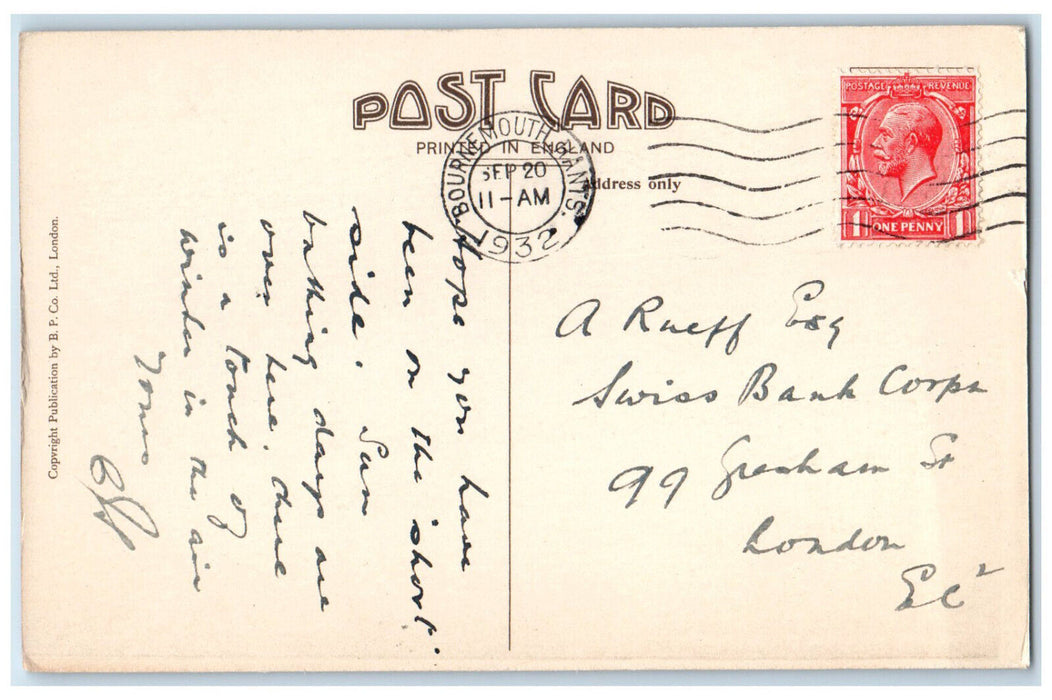 POST CARD
PRINTED IN ENGLAND
Address only
BOURNEMOUTH HANTS.
SEP 20
11-AM
1932
POSTAGE REVENUE
1 ONE PENNY 1
Copyright Publication by B. P. Co. Ltd., London.
Hope you have
been on the "short"
side. Sun
bathing days are
over here. There
is a touch of
winter in the air
Yours
A Rueff Esq
Swiss Bank Corpn
99 Gresham St
London
EC2